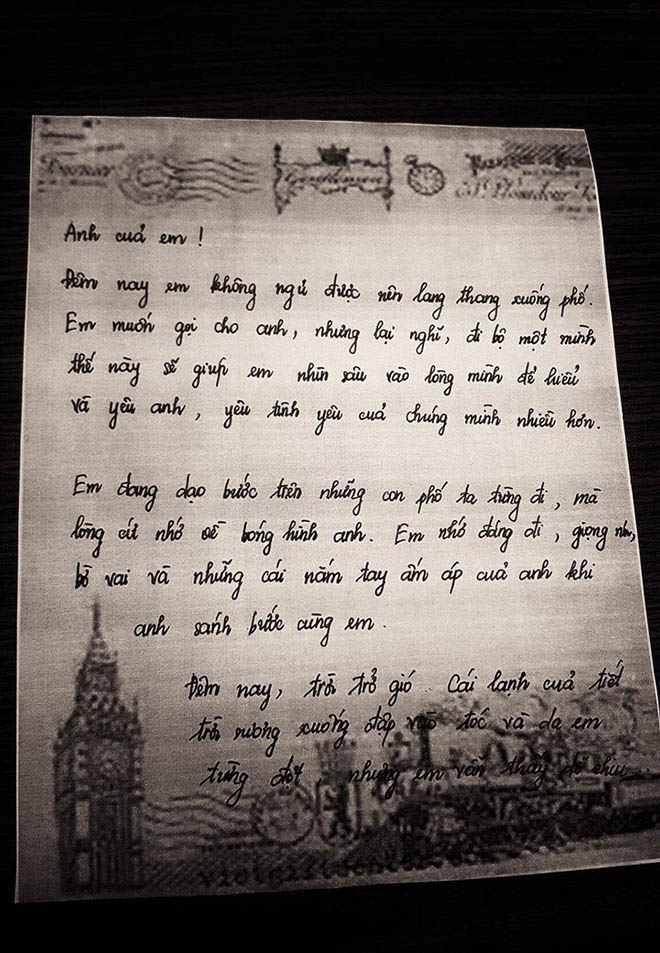 Gentlemen
Anh của em !
Đêm nay em không ngủ được nên lang thang xuống phố.
Em muốn gọi cho anh, nhưng lại nghĩ, đi bộ một mình
thế này sẽ giúp em nhìn sâu vào lòng mình để hiểu
và yêu anh, yêu tình yêu của chúng mình nhiều hơn.
Em đang dạo bước trên những con phố ta từng đi, mà
lòng cứ nhớ về bóng hình anh. Em nhớ dáng đi, giọng nói,
bờ vai và những cái nắm tay ấm áp của anh khi
anh sánh bước cùng em.
Đêm nay, trời trở gió.. Cái lạnh của tiết
trời sương xuống đập vào tóc và da em
từng đợt, nhưng em vẫn thấy dễ chịu...